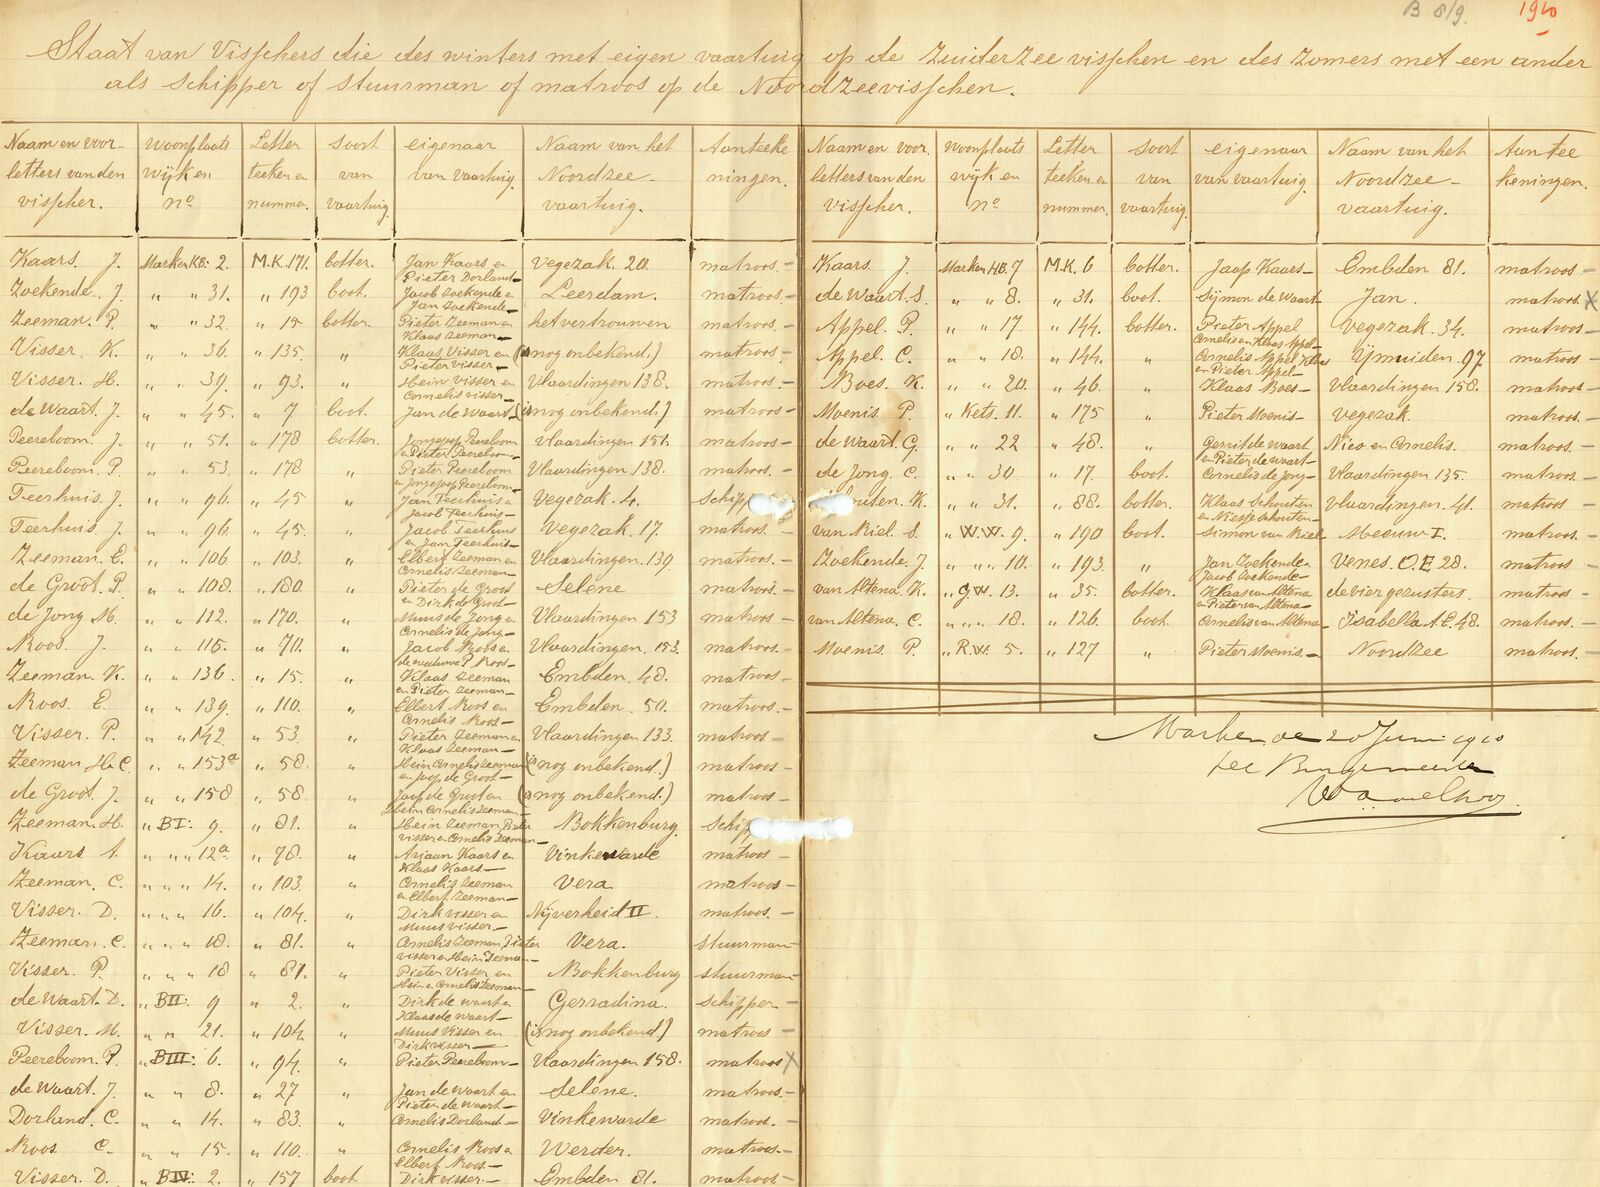 B 8/9. 1910
Staat van Visschers die des winters met eigen vaartuig op de Zuiderzee visschen en des Zomers met een ander
als schipper of stuurman of matroos op de Noordzeevisschen.
Naam en voor- woonplaats Letter soort eigenaar Naam van het Aanteeke
letters van den wijk en teeken en van van vaartuig. Noordzee- ningen.
visscher. no nummer. vaartuig. vaartuig.
Kaars. J. Marken KB: 2. M.K. 171. botter. Jan Kaars en Pieter Dorland- Vegezak. 20. matroos-
Zoekende. J. " " 31. " 193 boot. Jacob Zoekende en Jan Zoekende- Leerdam. matroos-
Zeeman. P. " " 32. " 15 botter. Pieter Zeeman en Klaas Zeeman- het vertrouwen matroos-
Visser. K. " " 36. " 135. " Klaas Visser en Pieter Visser- (is nog onbekend.) matroos-
Visser. H. " " 39. " 93. " Hein Visser en Cornelis Visser- Vlaardingen 138. matroos-
de Waart. J. " " 45. " 7 boot. Jan de Waart- (is nog onbekend.) matroos-
Peereboom. J. " " 51. " 178 botter. Peereboom en Pieter Peereboom- Vlaardingen 151. matroos-
Peereboom. P. " " 53. " 178 " Pieter Peereboom en Peereboom- Vlaardingen 138. matroos-
Teerhuis. J. " " 96. " 45 " Jan Teerhuis en Jacob Teerhuis- Vegezak. 4. schipp
Teerhuis. J. " " 96. " 45. " Jacob Teerhuis en Jan Teerhuis- Vegezak 17. matroos-
Zeeman. E. " " 106 " 103. " Elbert Zeeman en Cornelis Zeeman- Vlaardingen 139. matroos-
de Groot. P. " " 108. " 180. " Pieter de Groot en Dirk de Groot- Selene matroos-
de Jong M. " " 112. " 170. " Muus de Jong en Cornelis de Jong- Vlaardingen 153 matroos-
Roos. J. " " 115. " 70. " Jacob Roos en de weduwe P. Roos- Vlaardingen. 153. matroos-
Zeeman. K. " " 136. " 15. " Klaas Zeeman en Pieter Zeeman- Embden. 48. matroos-
Roos. E. " " 139. " 110. " Elbert Roos en Cornelis Roos- Embden. 50. matroos-
Visser. P. " " 142 " 53. " Pieter Zeeman en Klaas Zeeman- Vlaardingen 133. matroos-
Zeeman H.C. " " 153a " 58. " Hein Cornelis Zeeman en Jaap de Groot- (is nog onbekend.) matroos-
de Groot. J. " " 158 " 58 " Jaap de Groot en Hein Cornelis Zeeman- (is nog onbekend.) matroos-
Zeeman. H. " BI: 9. " 81. " Hein Zeeman Pieter Visser en Cornelis Zeeman- Bokkenburg. schipp
Kaars A. " " " 12a " 78. " Ariaan Kaars en Klaas Kaars- Vinkewarde matroos-
Zeeman. C. " " " 14. " 103. " Cornelis Zeeman en Elbert Zeeman- Vera matroos-
Visser. D. " " " 16. " 104. " Dirk Visser en Muus Visser- Nijverheid II. matroos.-
Zeeman. C. " " " 18. " 81. " Cornelis Zeeman, Pieter Visser en Hein Zeeman- Vera. stuurman-
Visser. P. " " " 18 " 81. " Pieter Visser en Hein en Cornelis Zeeman- Bokkenburg stuurman-
de Waart. D. " BII: 9 " 2. " Dirk de Waart en Klaas de Waart- Gerradina. schipper-
Visser. M. " " 21. " 104 " Muus Visser en Dirk Visser- (is nog onbekend) matroos-
Peereboom. P. " BIII: 6. " 94. " Pieter Peereboom- Vlaardingen 158. matroos X
de Waart. J. " " 8. " 27 " Jan de Waart en Pieter de Waart- Selene. matroos-
Dorland. C. " " 14. " 83 " Cornelis Dorland- Vinkewarde matroos.-
Roos C. " " 15. " 110. " Cornelis Roos en Elbert Roos- Werder. matroos.-
Visser. D. " BIV: 2. " 157 boot. Dirk Visser.- Embden 81. matroos.-
Naam en voor. woonplaats Letter soort eigenaar Naam van het Aantee
letters van den wijk en teeken en van van vaartuig. Noordzee- keningen.
visscher. no nummer. vaartuig. vaartuig.
Kaars. J. Marken HB. 7 M.K. 6 botter. Jaap Kaars- Embden 81. matroos-
de Waart. S. " " 8. " 31. boot. Sijmon de Waart- Jan. matroos. X
Appel. P. " " 17. " 144. botter. Pieter Appel Cornelis en Klaas Appel- Vegezak. 34. matroos-
Appel. C. " " 18. " 144. " Cornelis Appel Klaas en Pieter Appel- IJmuiden. 97. matroos-
Boes. K. " " 20. " 46. " Klaas Boes- Vlaardingen 158. matroos-
Moenis. P. " Kets. 11. " 175 " Pieter Moenis- Vegezak. matroos.-
de Waart. G. " " 22 " 48. " Gerrit de Waart en Pieter de Waart- Nico en Cornelis. matroos.-
de Jong. C. " " 30 " 17. boot. Cornelis de Jong- Vlaardingen 135. matroos.-
houten. K. " " 31. " 88. botter. Klaas Schouten en Schouten- Vlaardingen. 41. matroos.-
van Riel. S. " W.W. 9. " 190 boot. Simon van Riel Meeuw I. matroos.-
Zoekende. J. " " " 10. " 193. " Jan Zoekende en Jacob Zoekende- Venes. O.E. 28. matroos-
van Altena. K. " G.W. 13. " 35. botter. Klaas van Altena en Pieter van Altena- de vier gezusters. matroos-
van Altena. C. " " " 18. " 126. boot. Cornelis van Altena- Isabella A.E. 48. matroos.-
Moenis P. " R.W. 5. " 127 " Pieter Moenis- Noordzee matroos.-
Marken, de 20 Juni 1910
De Burgemeester